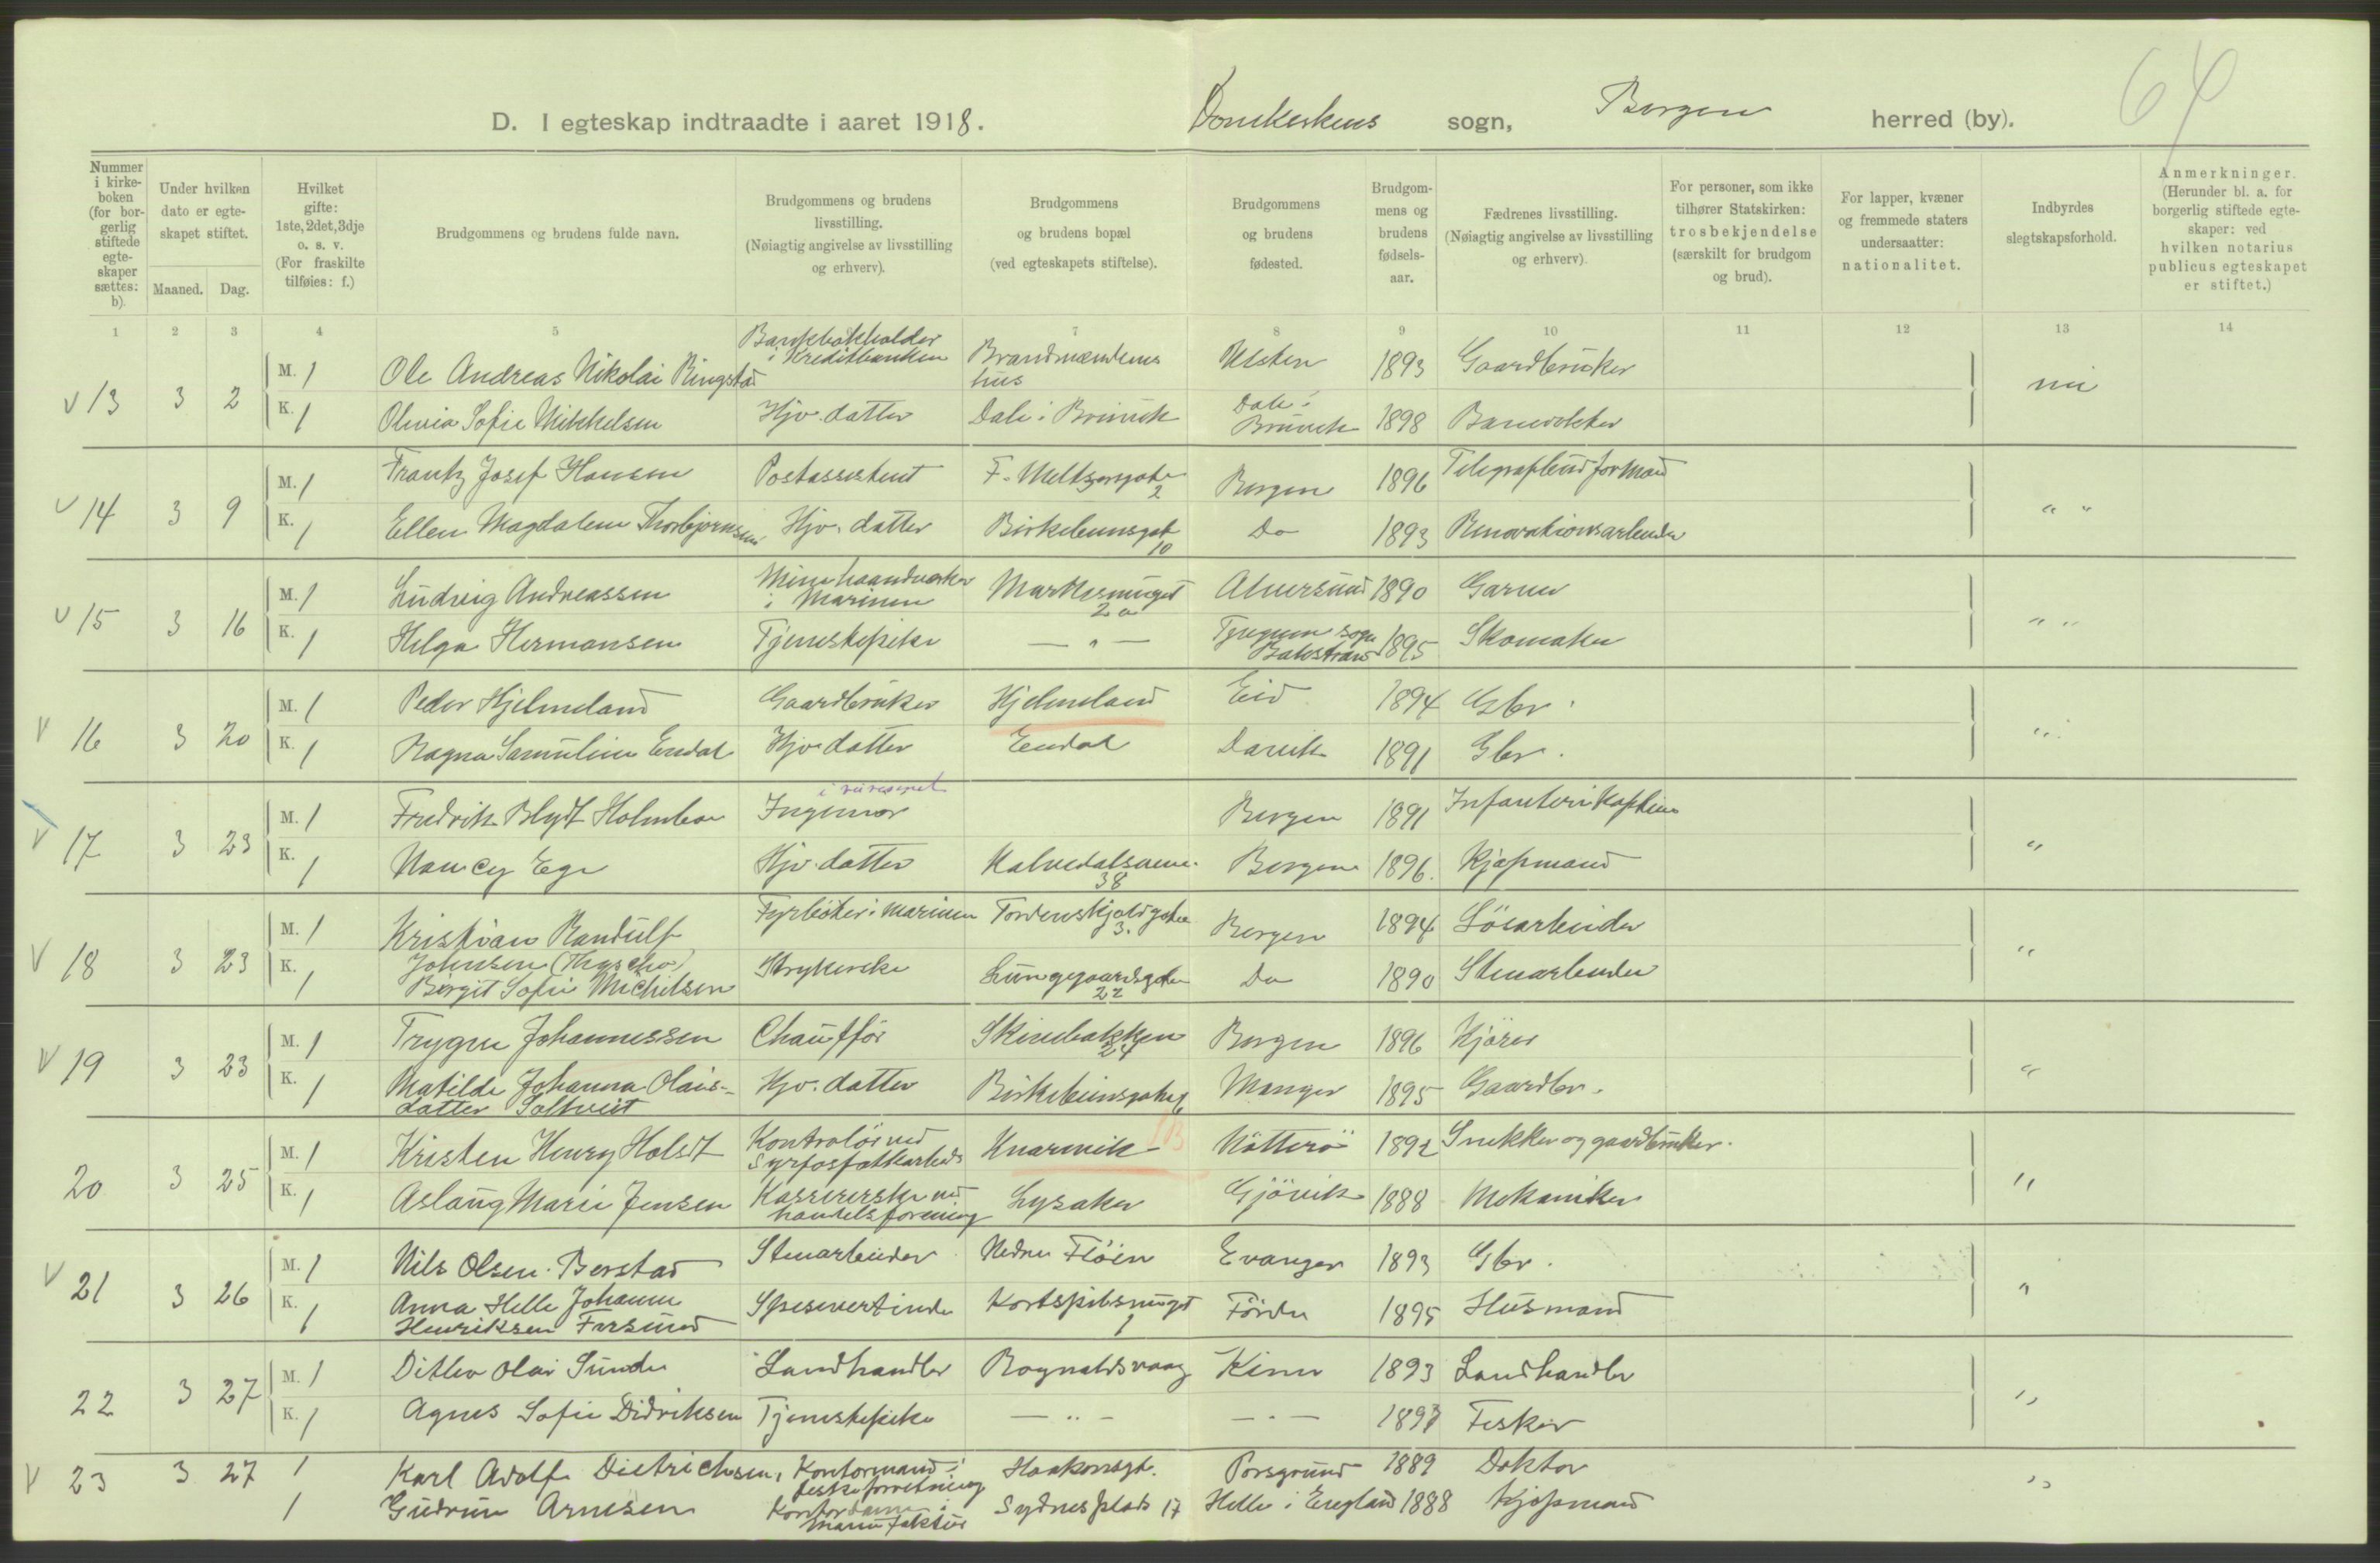 64
D. I egteskap indtraadte i aaret 1918. Domkirkens sogn, Bergen herred (by).
Nummer i kirkeboken (for borgerlig stiftede egteskaper sættes: b).
Under hvilken dato er egteskapet stiftet.
Maaned. Dag.
Hvilket gifte: 1ste, 2det, 3dje o. s. v. (For fraskilte tilføies: f.)
Brudgommens og brudens fulde navn.
Brudgommens og brudens livsstilling. (Nøiagtig angivelse av livsstilling og erhverv).
Brudgommens og brudens bopæl (ved egteskapets stiftelse).
Brudgommens og brudens fødested.
Brudgommens og brudens fødselsaar.
Fædrenes livsstilling. (Nøiagtig angivelse av livsstilling og erhverv).
For personer, som ikke tilhører Statskirken: trosbekjendelse (særskilt for brudgom og brud).
For lapper, kvæner og fremmede staters undersaatter: nationalitet.
Indbyrdes slegtskapsforhold.
Anmerkninger. (Herunder bl. a. for borgerlig stiftede egteskaper: ved hvilken notarius publicus egteskapet er stiftet.)
1 2 3 4 5 7 8 9 10 11 12 13 14
V 13 3 2 M. 1 Ole Andreas Nikolai Ringstad Bankbokholder i Kreditbanken Brandmændenes hus 1893 Gaardbruker nei
K. 1 Olivia Sofie Mikkelsen Hjv. datter Dale i Bruvik Dale i Bruvik 1898 Banevokter
V 14 3 9 M. 1 Frantz Josef Hansen Postassistent F. Meltzersgate 2 Bergen 1896 Telegrafbudformand " "
K. 1 Ellen Magdalene Thorbjørnsen Hjv. datter Birkebeinsgt 10 Do 1893 Renovationsarbeider
V 15 3 16 M. 1 Ludvig Andreassen Minehaandverker i Marinen 2a Alversund 1890 Garver " "
K. 1 Helga Hermansen Tjenestepike — " — sogn Balestrand 1895 Skomaker
V 16 3 20 M. 1 Peder Hjelmeland Gaardbruker Hjelmeland Eid 1894 Gbr. "
K. 1 Ragna Samuline Endal Hjv. datter Endal Davik 1891 Gbr.
V 17 3 23 M. 1 Fredrik Blydt Holmboe Ingeniør Bergen 1891 Infanterikaptein "
K. 1 Nancy Ege Hjv. datter Kalvedalsveien 38 Bergen 1896. Kjøpmand
V 18 3 23 M. 1 Kristian Randulf Johnsen Fyrbøter i Marinen Tordenskjoldgaten 3. Bergen 1894 Løsarbeider "
K. 1 Borgit Sofie Michelsen Strykerske Lungegaardsgaten 22 Do 1890 Stenarbeider
V 19 3 23 M. 1 Trygve Johannessen Chauffør Skivebakken 24 Bergen 1896 Kjører "
K. 1 Matilde Johanna Olaisdatter Soltveit Hjv. datter Birkebeinsgaten Manger 1895 Gaardbr.
20 3 25 M. 1 Kristen Henry Holst Kontrolør ved Knarvik Nøtterø 1892 Snekker og gaardbruker. "
K. 1 Aslaug Marie Jensen Kassererske ved handelsforening Lysaker Gjövik 1888 Mekaniker
V 21 3 26 M. 1 Nils Olsen Berstad Stenarbeider Nedre Fløien Evanger 1893 Gbr. "
K. 1 Anna Helle Johanne Henriksen Farsund Spisevertinde 1 Førde 1895 Husmand
22 3 27 M. 1 Ditlev Olai Sunde Landhandler Rognaldsvaag Kinn 1893 Landhandler "
K. 1 Agnes Sofie Didriksen Tjenestepike — " — — " — 1897 Fisker
V 23 3 27 1 Karl Adolf Dietrichsen, Kontormand i fiskeforretning Haakonsgt. Porsgrund 1889 Doktor "
1 Gudrun Arnesen Kontordame i Manufaktur Sydnesplads 17 Helle i England 1888 Kjøpmand